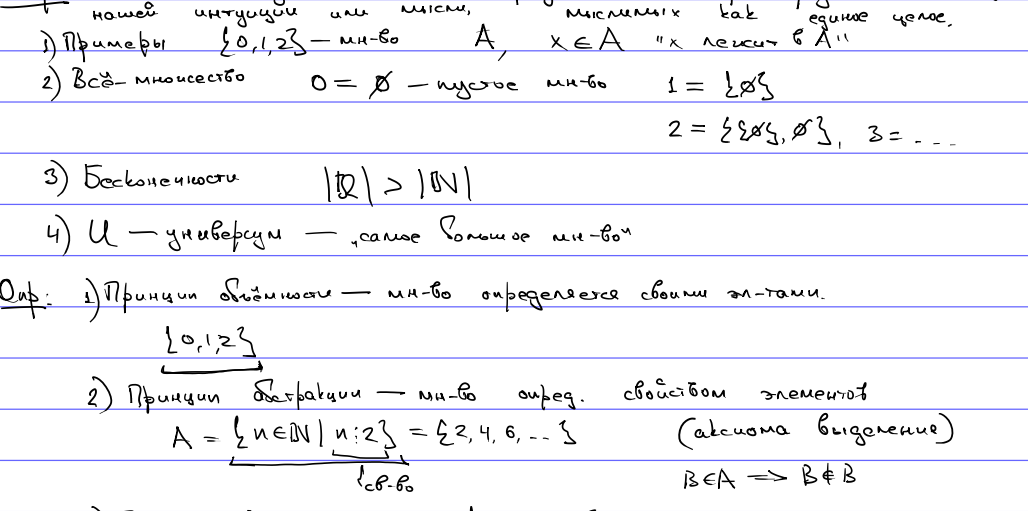 нашей интуиции или мысли, мыслимых как единое целое.
1) Примеры {0,1,2} – мн-во A, x∈A "x лежит в A"
2) Всё – множество 0 = ∅ – пустое мн-во 1 = {∅}
2 = {{∅},∅}, 3 = ...
3) Бесконечности |ℝ| > |ℕ|
4) U – универсум – "самое большое мн-во"
Опр: 1) Принцип объёмности – мн-во определяется своими эл-тами.
{0,1,2}
2) Принцип абстракции – мн-во опред. свойством элементов
A = {n∈ℕ | n⋮2} = {2, 4, 6, ...} (аксиома выделение)
св-во B∈A => B∉B